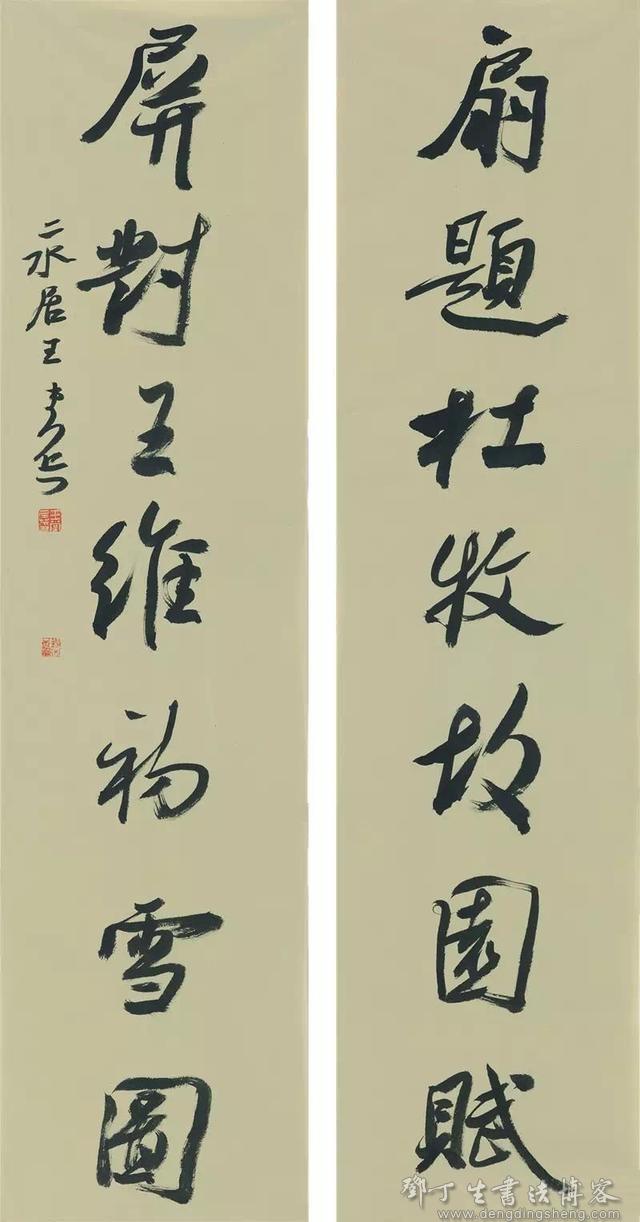 扇題杜牧故園賦
屏對王維初雪圖
居王
鄧丁生書法博客
www.dengdingsheng.com